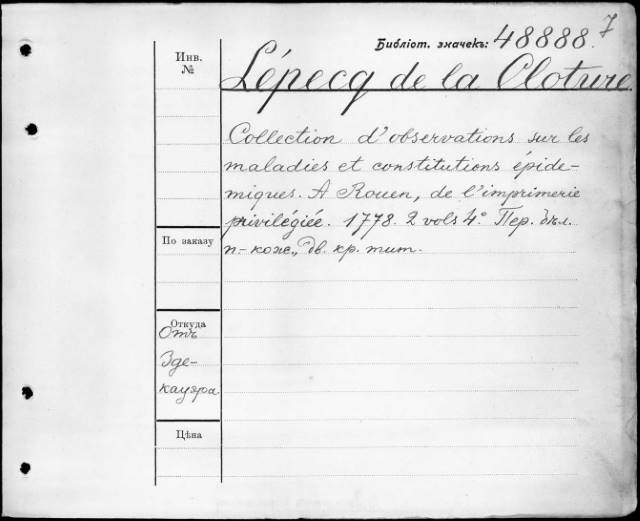 7
Библіот. значекъ: 48888.
Инв.
№
Lépecq de la Cloture.
Collection d'observations sur les
maladies et constitutions épide-
miques. A Rouen, de l'imprimerie
privilégiée. 1778. 2 vols 4° Пер. бѣл.
п.-кож., дв. кр. тит.
По заказу
Откуда
Отъ
Зде-
кауэра.
Цѣна